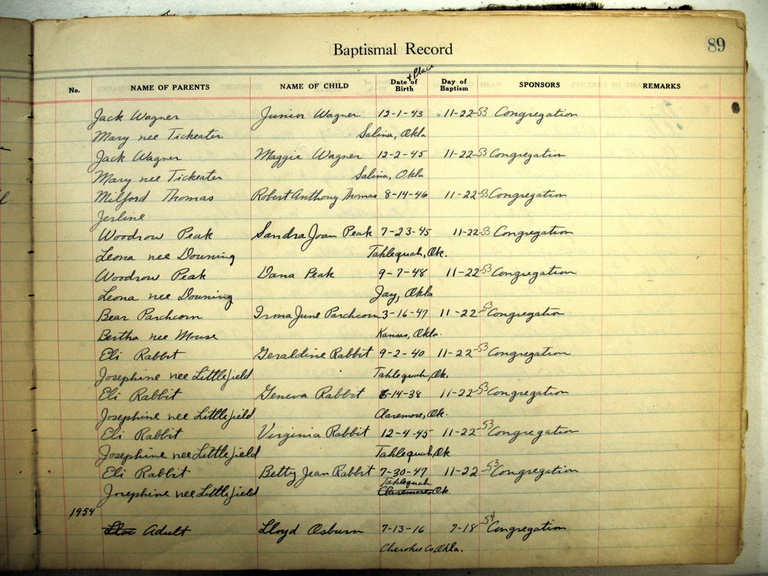 Baptismal Record
89
No. NAME OF PARENTS NAME OF CHILD Date of Birth + Place Day of Baptism SPONSORS REMARKS
Jack Wagner Junior Wagner 12-1-43 11-22-53 Congregation
Mary nee Tickeater Salina, Okla
Jack Wagner Maggie Wagner 12-2-45 11-22-53 Congregation
Mary nee Tickeater Salina, Okla
Milford Thomas Robert Anthony Thomas 8-14-46 11-22-53 Congregation
Jerlene
Woodrow Peak Sandra Joan Peak 7-23-45 11-22-53 Congregation
Leona nee Downing Tahlequah, Ok.
Woodrow Peak Dana Peak 9-7-48 11-22-53 Congregation
Leona nee Downing Jay, Okla
Bear Parchcorn Irma June Parchcorn 3-16-47 11-22-53 Congregation
Bertha nee Mouse Kansas, Okla.
Eli Rabbit Geraldine Rabbit 9-2-40 11-22-53 Congregation
Josephine nee Littlefield Tahlequah, Ok.
Eli Rabbit Geneva Rabbit 11-22-53 Congregation
Josephine nee Littlefield Claremore, Ok.
Eli Rabbit Virginia Rabbit 12-4-45 11-22-53 Congregation
Josephine nee Littlefield Tahlequah, Ok
Eli Rabbit Betty Jean Rabbit 7-30-47 11-22-53 Congregation
Tahlequah
Josephine nee Littlefield Claremore, Ok.
1954
Adult Lloyd Osburn 7-13-16 7-18-54 Congregation
Cherokee Co, Okla.